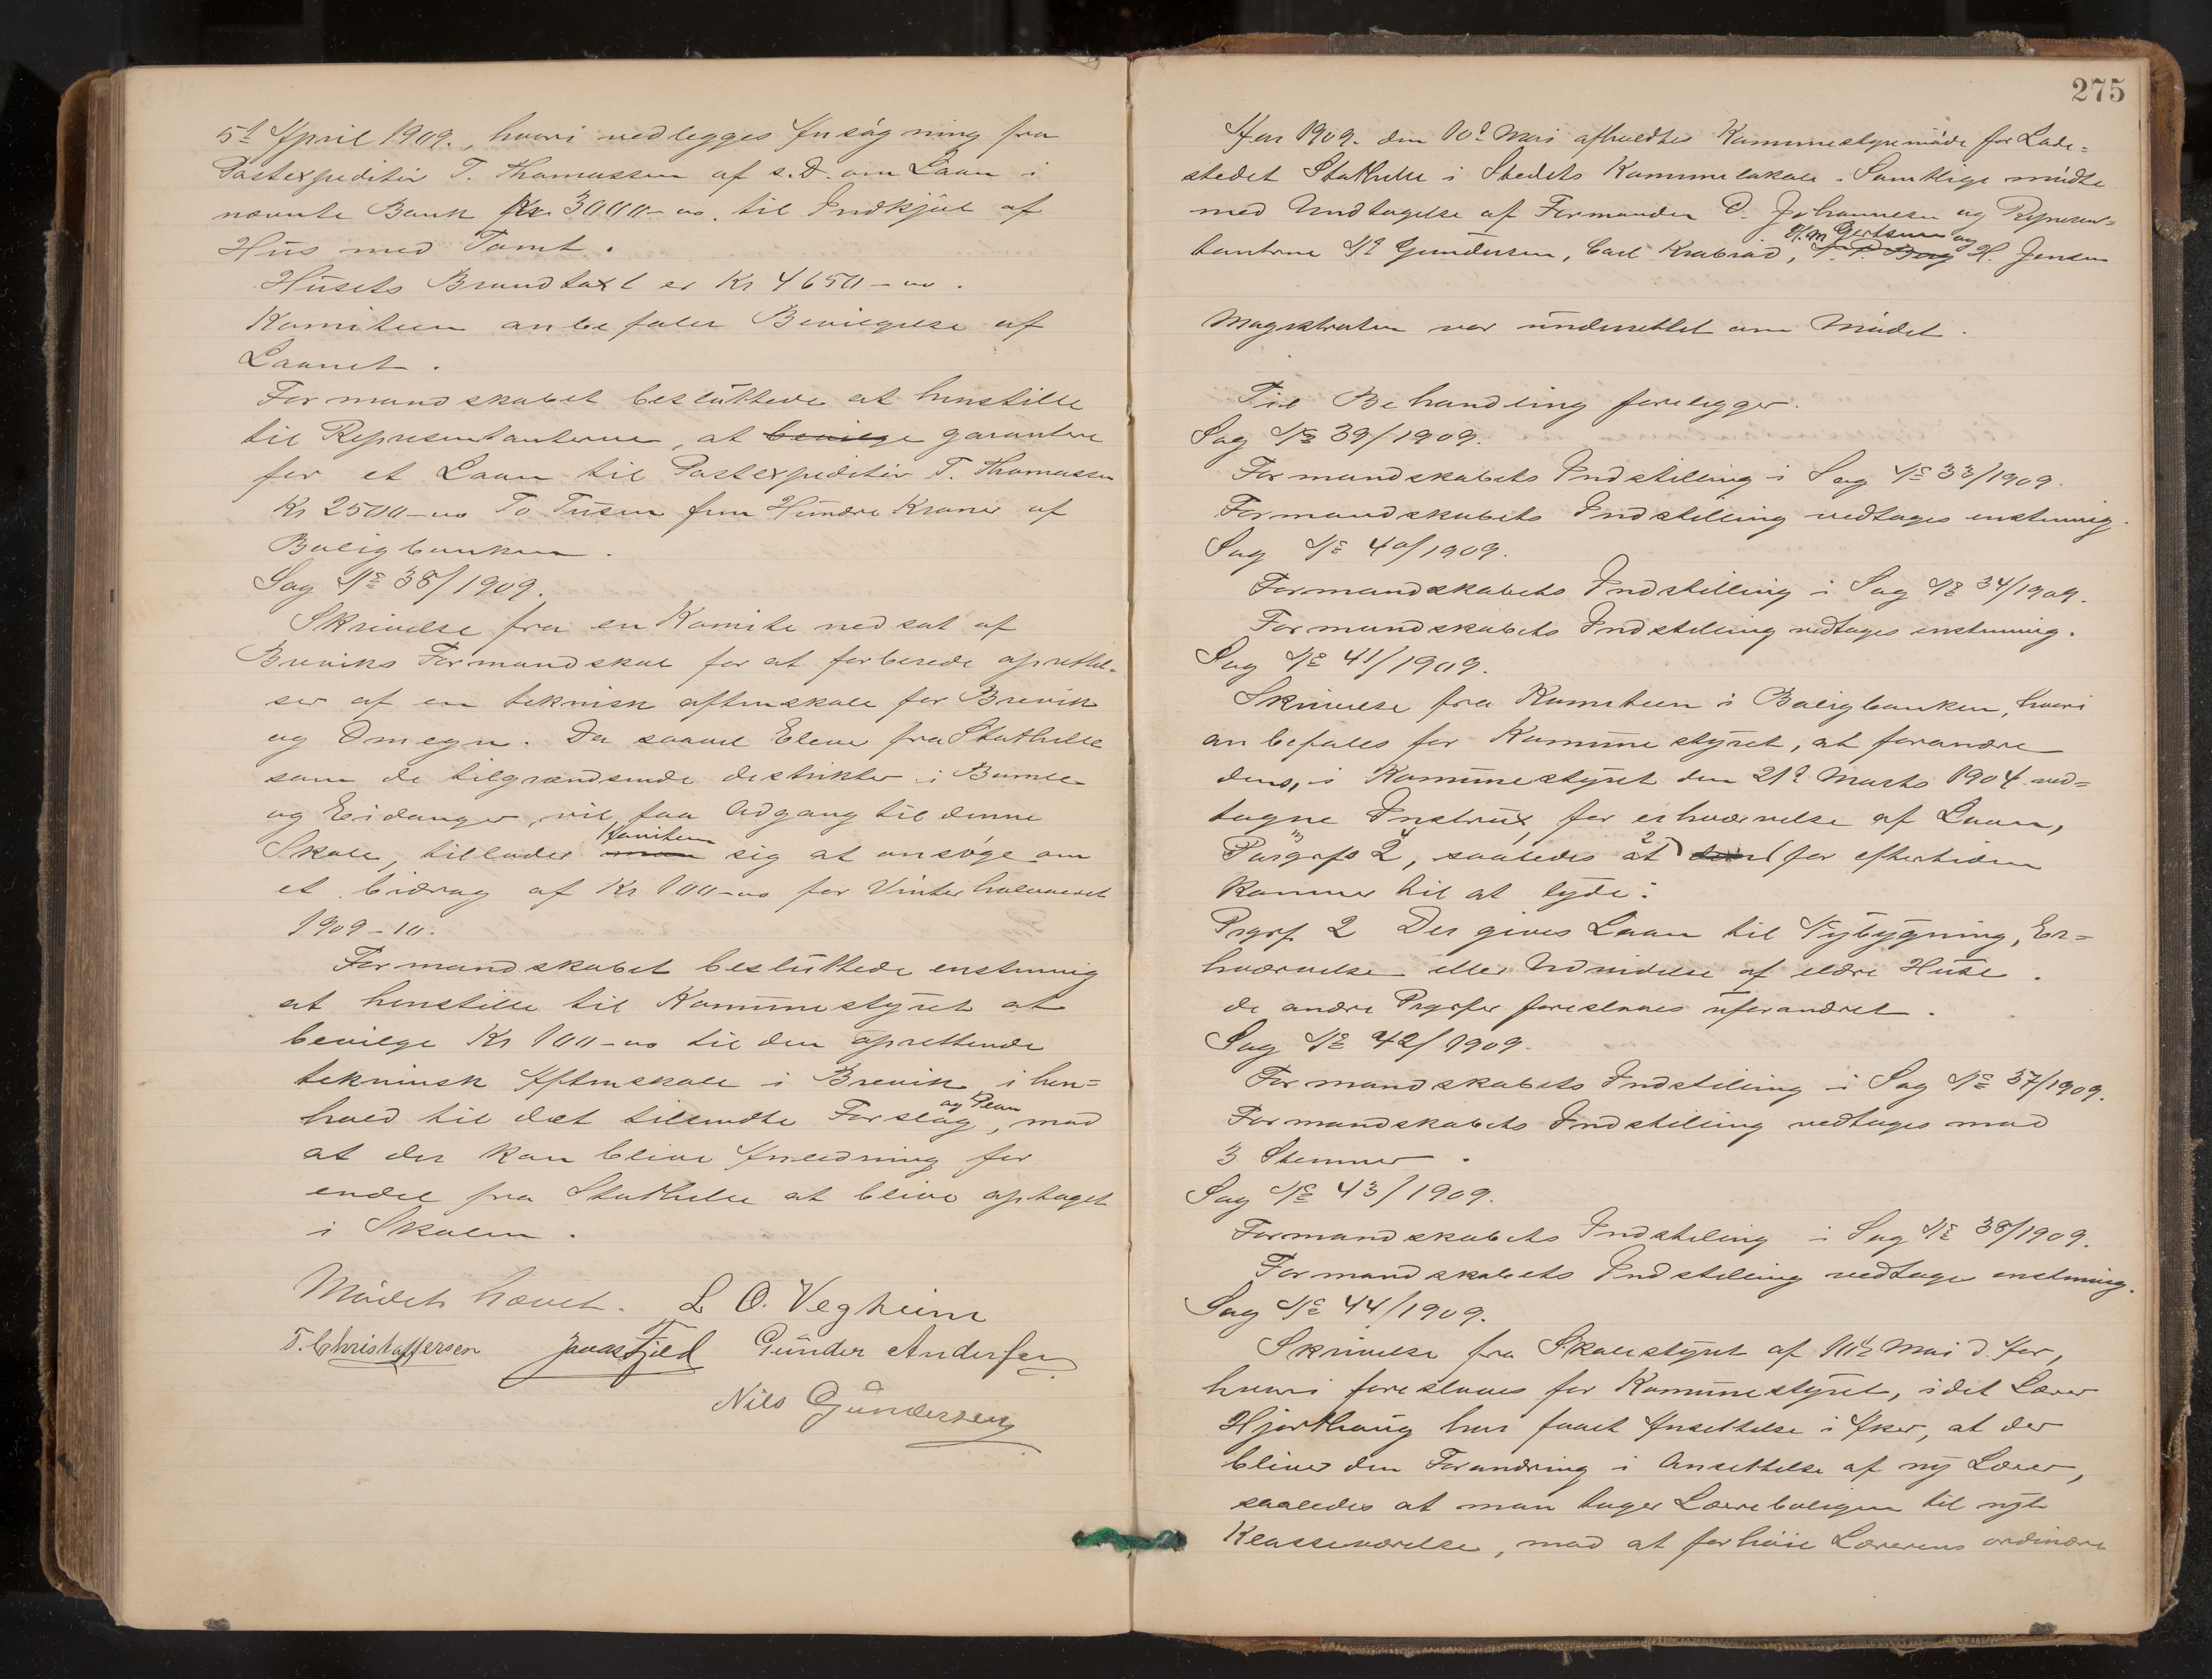 5t April 1909., hvori vedlegges Ansøgning fra
Postexpeditør T. Thomassen af s. D. om Laan i
nævnte Bank Kr 3000-00. til Indkjøb af
Hus med Tomt.
Husets Brandtaxt er Kr 4650-00.
Komiteen anbefaler Bevilgelse af
Laanet.
Formandskabet besluttede at henstille
til Representanterne, at bevilge garantere
for et Laan til Postexpeditør T. Thomassen
Kr 2500-00 To Tusen fem Hundre Kroner af
Boligbanken.
Sag No 38/1909.
Skrivelse fra en Komite nedsat af
Breviks Formandskab for at forberede oprettel-
ser af en teknisk aftenskole for Brevik
og Omegn. Da saavel Elever fra Stathelle
som de tilgrændsende destrikter i Bamle
og Eidanger, vil faa Adgang til denne
Skole, tillader man Komiteen sig at ansøge om
et bidrag af Kr 100-00 for Vinterhalvaaret
1909-10.
Formandskabet besluttede enstemmig
at henstille til Kommunestyret at
bevilge Kr 100-00 til den oprettende
teknisk Aftenskole i Brevik i hen=
hold til det tilsendte Forslag og Plan, mod
at der kan blive Anledning for
endel fra Stathelle at blive optaget
i Skolen.
Mødet hævet. L O. Vegheim
T. Christoffersen Jonas Fjeld Gunder Andersen
Nils Gundersen
275
Aar 1909. den 10d Mai afholdtes Kommunestyremøde for Lade=
stedet Stathelle i Stedets Kommunelokale. Samtlige mødte
med Undtagelse af Formanden O. Johannesen og Represen=
tanterne Ns Gundersen, Carl Krabrød, H. M Gertsen og H. Jensen
Magistraten var underrettet om Mødet.
Til Behandling foreligger.
Sag No 39/1909.
Formandskabets Indstilling i Sag No 33/1909.
Formandskabets Indstilling vedtages enstemmig.
Sag No 40/1909.
Formandskabets Indstilling i Sag No 34/1909.
Formandskabets Indstilling vedtages enstemmig.
Sag No 41/1909.
Skrivelse fra Komiteen i Boligbanken, hvori
anbefales for Kommunestyret, at forandre
dens, i Kommunestyret den 21d Marts 1904 ved=
tagne Instrux for erhværvelse af Laan,
"Pargrfs 2", saaledes at den for eftertiden
kommer til at lyde:
Prgrf 2 Der gives Laan til Nybygning, Er=
hværvelse eller Udvidelse af eldre Huse.
de andre Prgrfer foreslaaes uforandret.
Sag No 42/1909.
Formandskabets Indstilling i Sag No 37/1909.
Formandskabets Indstilling vedtages mod
3 Stemmer.
Sag No 43/1909.
Formandskabets Indstilling i Sag No 38/1909.
Formandskabets Indstilling vedtages enstemmig.
Sag No 44/1909.
Skrivelse fra Skolestyret af 10d Mai d. Aar,
hvori foreslaaes for Kommunestyret, idet Lærer
Hjorthaug har faaet Ansettelse i Asker, at der
bliver den Forandring i Ansettelse af ny Lærer,
saaledes at man tager Lærerboligen til nyt
Klasseværelse, mod at forhøie Lærerens ordinære